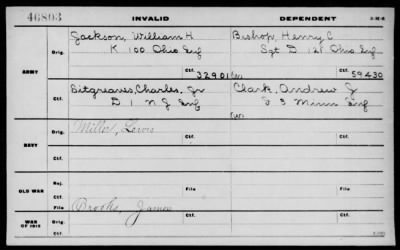 46803 INVALID DEPENDENT 3-21-6
Jackson, William H Bishop, Henry C
Orig. K 100 Ohio Inf Sgt D 121 Ohio Inf
ARMY Ctf. 32901 59430
Sitgreaves, Charles, Jr Clark, Andrew J
Ctf. D 1 N J Inf 3 Minn Inf
Miller, Lewis
Orig. Orig.
NAVY
Ctf. Ctf.
Rej.
Ctf.
OLD WAR
File File
Brooks, James
WAR OF 1812 Orig. Ctf. Orig. Ctf.